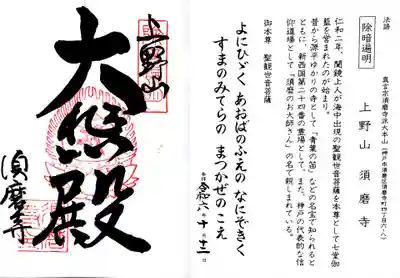 真言宗須磨寺派大本山(神戸市須磨区須磨寺町四丁目六ノ八)
上野山 須磨寺
法語
除暗遍明
仁和二年、聞鏡上人が海中出現の聖観世音菩薩を本尊として七堂伽
藍を営まれたのが始まり。
昔から源平ゆかりの寺として「青葉の笛」などの名宝で知られると
ともに、新西国第二十四番の霊場として、また、神戸の代表的な信
仰道場として「須磨のお大師さん」の名で親しまれている。
御本尊 聖観世音菩薩
よにひゞく あおばのふえの なにぞきく
すまのみてらの まつかぜのこえ
令和六年十月十二日
上野山
大悲殿
須磨寺